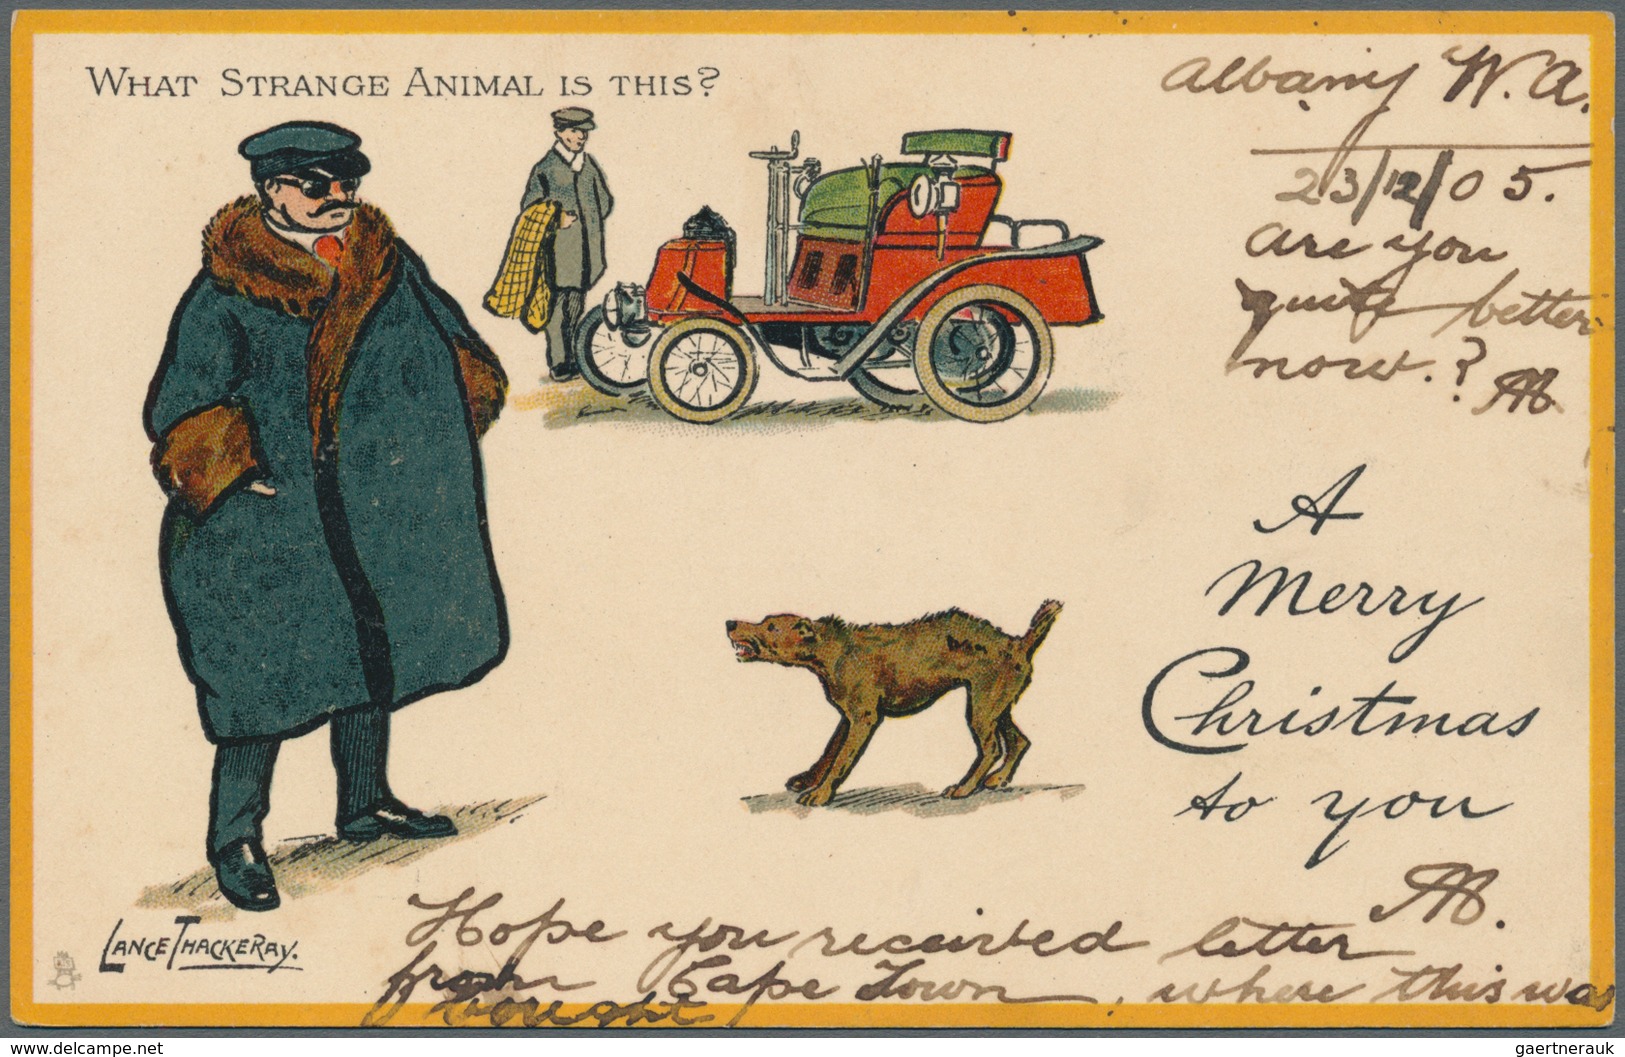 WHAT STRANGE ANIMAL IS THIS?
Albany W.A.
23/12/05.
Are you
quite better
now.?
AB
A
Merry
Christmas
to you
AB.
LANCE THACKERAY.
Hope you received letter
from Cape Town, where this was
bought
© www.delcampe.net
gaertnerauk